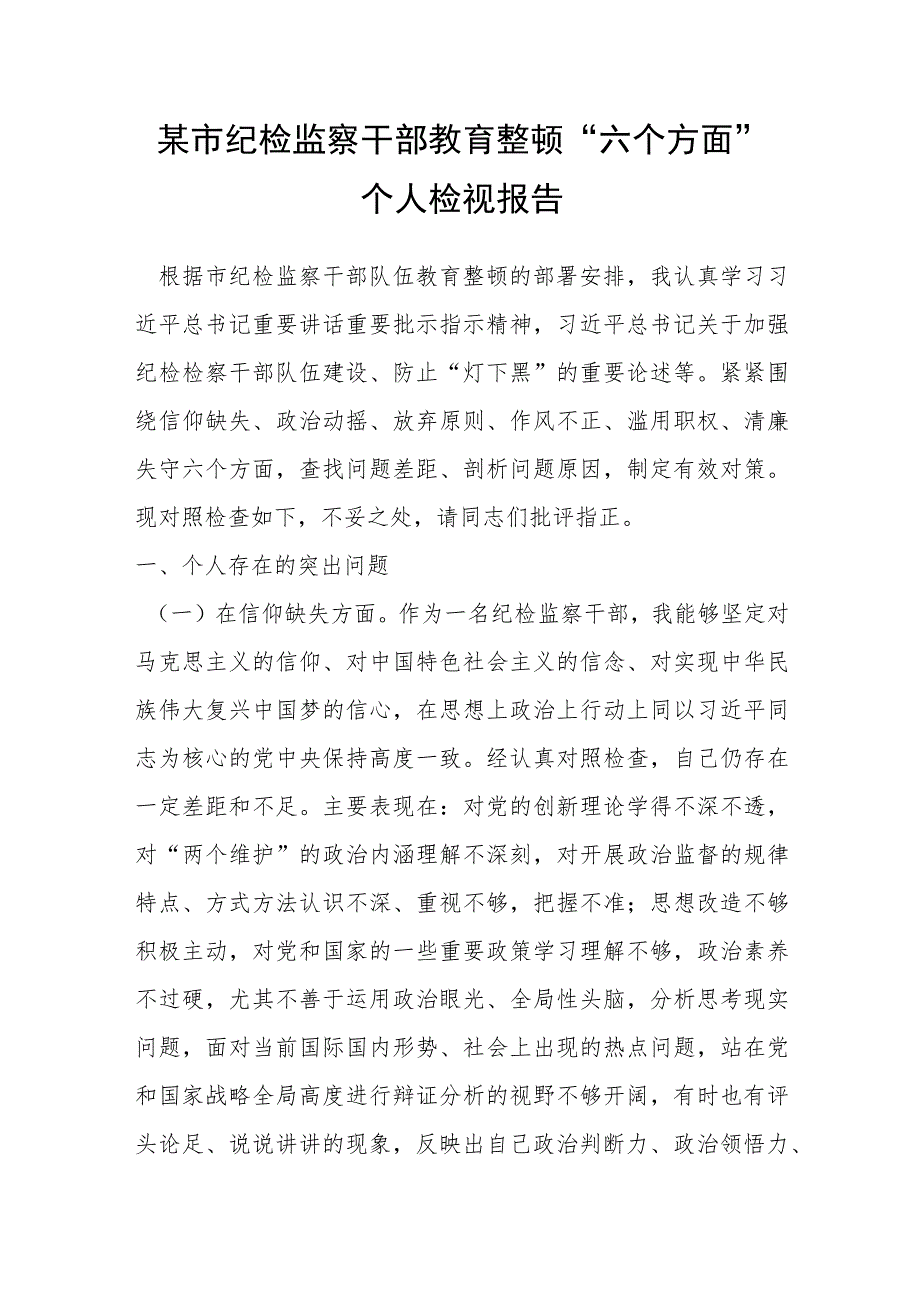 某市纪检监察干部教育整顿“六个方面”
个人检视报告
根据市纪检监察干部队伍教育整顿的部署安排，我认真学习习
近平总书记重要讲话重要批示指示精神，习近平总书记关于加强
纪检检察干部队伍建设、防止“灯下黑”的重要论述等。紧紧围
绕信仰缺失、政治动摇、放弃原则、作风不正、滥用职权、清廉
失守六个方面，查找问题差距、剖析问题原因，制定有效对策。
现对照检查如下，不妥之处，请同志们批评指正。
一、个人存在的突出问题
（一）在信仰缺失方面。作为一名纪检监察干部，我能够坚定对
马克思主义的信仰、对中国特色社会主义的信念、对实现中华民
族伟大复兴中国梦的信心，在思想上政治上行动上同以习近平同
志为核心的党中央保持高度一致。经认真对照检查，自己仍存在
一定差距和不足。主要表现在：对党的创新理论学得不深不透，
对“两个维护”的政治内涵理解不深刻，对开展政治监督的规律
特点、方式方法认识不深、重视不够，把握不准；思想改造不够
积极主动，对党和国家的一些重要政策学习理解不够，政治素养
不过硬，尤其不善于运用政治眼光、全局性头脑，分析思考现实
问题，面对当前国际国内形势、社会上出现的热点问题，站在党
和国家战略全局高度进行辩证分析的视野不够开阔，有时也有评
头论足、说说讲讲的现象，反映出自己政治判断力、政治领悟力、